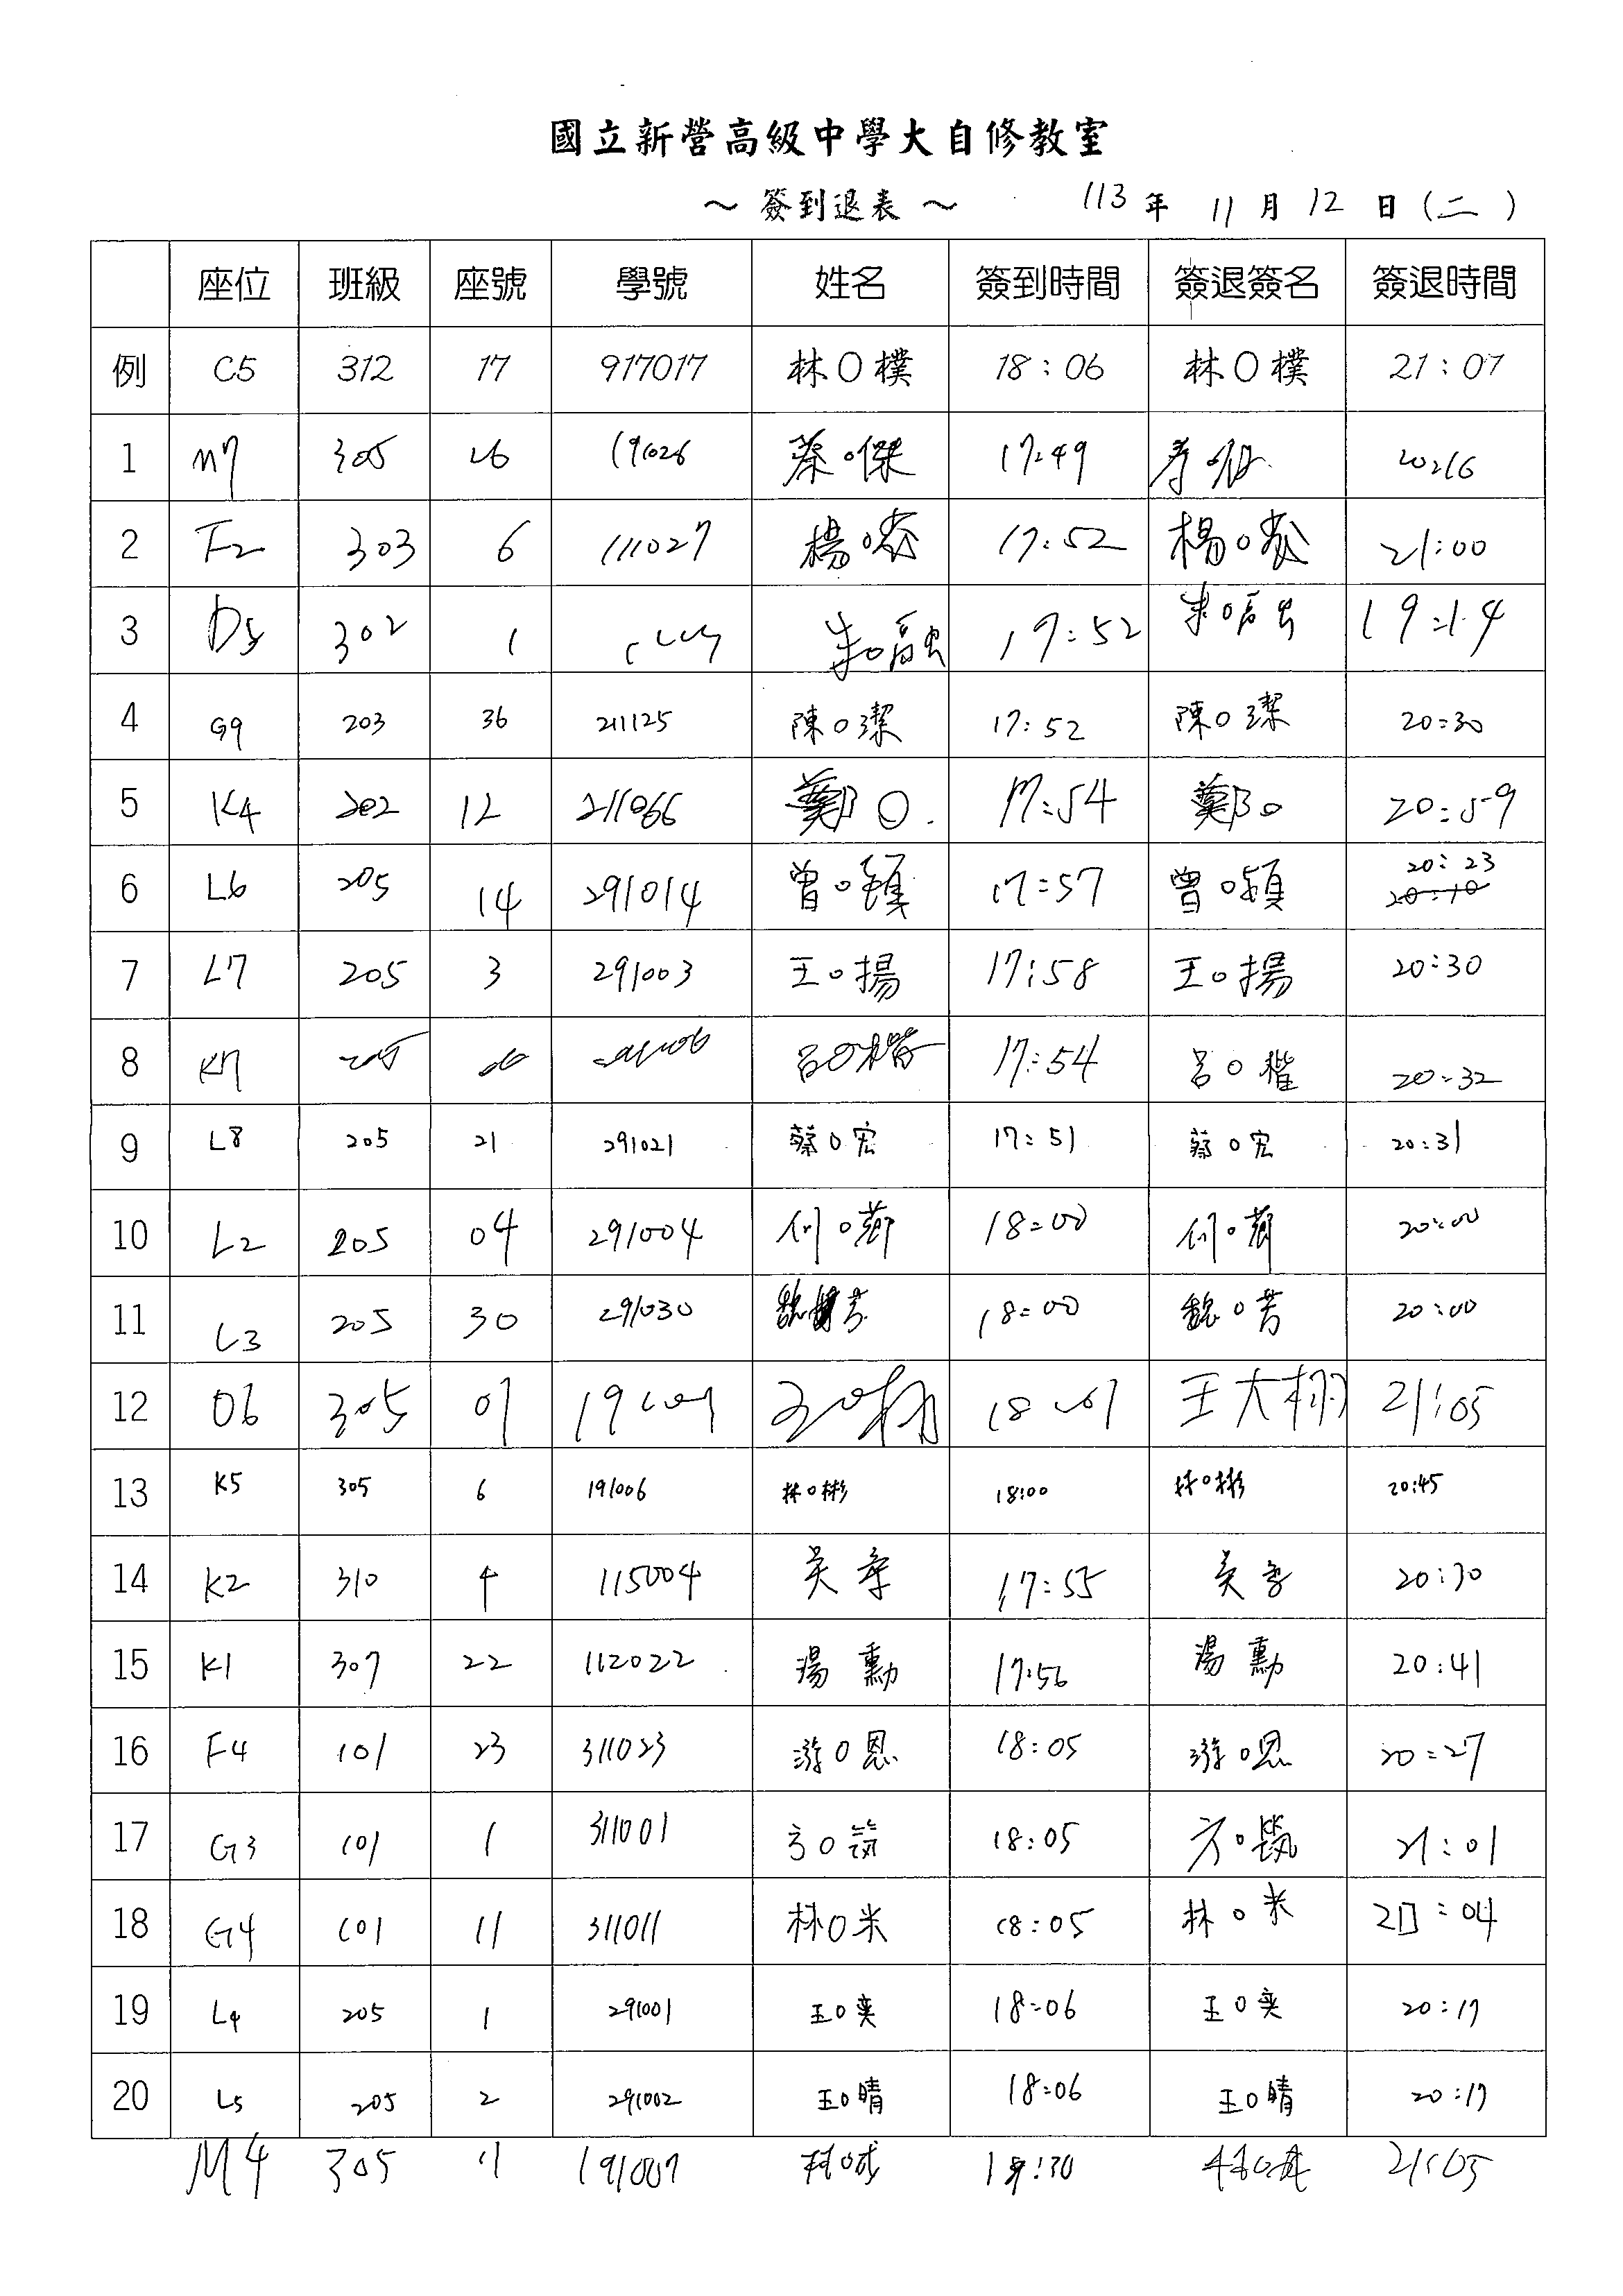 國立新營高級中學大自修教室
～ 簽到退表 ～ 113 年 11 月 12 日 (二)
座位 班級 座號 學號 姓名 簽到時間 簽退簽名 簽退時間
例 C5 312 17 917017 林〇樸 18:06 林〇樸 21:07
1 M7 305 26 191026 蔡〇傑 17:49 20:16
2 F2 303 6 111027 楊〇 17:52 楊〇 21:00
3 D5 302 1 朱〇融 17:52 朱〇融 19:14
4 G9 203 36 211125 陳〇潔 17:52 陳〇潔 20:30
5 K4 202 12 211066 鄭〇 17:54 鄭〇 20:59
6 L6 205 14 291014 曾〇 17:57 曾〇穎 20:23
7 L7 205 3 291003 王〇揚 17:58 王〇揚 20:30
8 K7 205 06 呂〇楷 17:54 呂〇楷 20:32
9 L8 205 21 291021 蔡〇宏 17:51 蔡〇宏 20:31
10 L2 205 04 291004 18:00 20:00
11 L3 205 30 291030 魏 芳 18:00 魏〇芳 20:00
12 O6 305 01 191001 王〇栩 18:01 王大栩 21:05
13 K5 305 6 191006 林〇彬 18:00 林〇彬 20:45
14 K2 310 4 115004 吳 17:55 吳 20:30
15 K1 307 22 112022 湯 勳 17:56 湯 勳 20:41
16 F4 101 23 311023 游〇恩 18:05 游〇恩 20:27
17 G3 101 1 311001 方〇筑 18:05 方〇筑 21:01
18 G4 101 11 311011 林〇米 18:05 林〇米 :04
19 L4 205 1 291001 王〇奕 18:06 王〇奕 20:17
20 L5 205 2 291002 王〇晴 18:06 王〇晴 20:17
M4 305 191007 林〇 :30 21:05